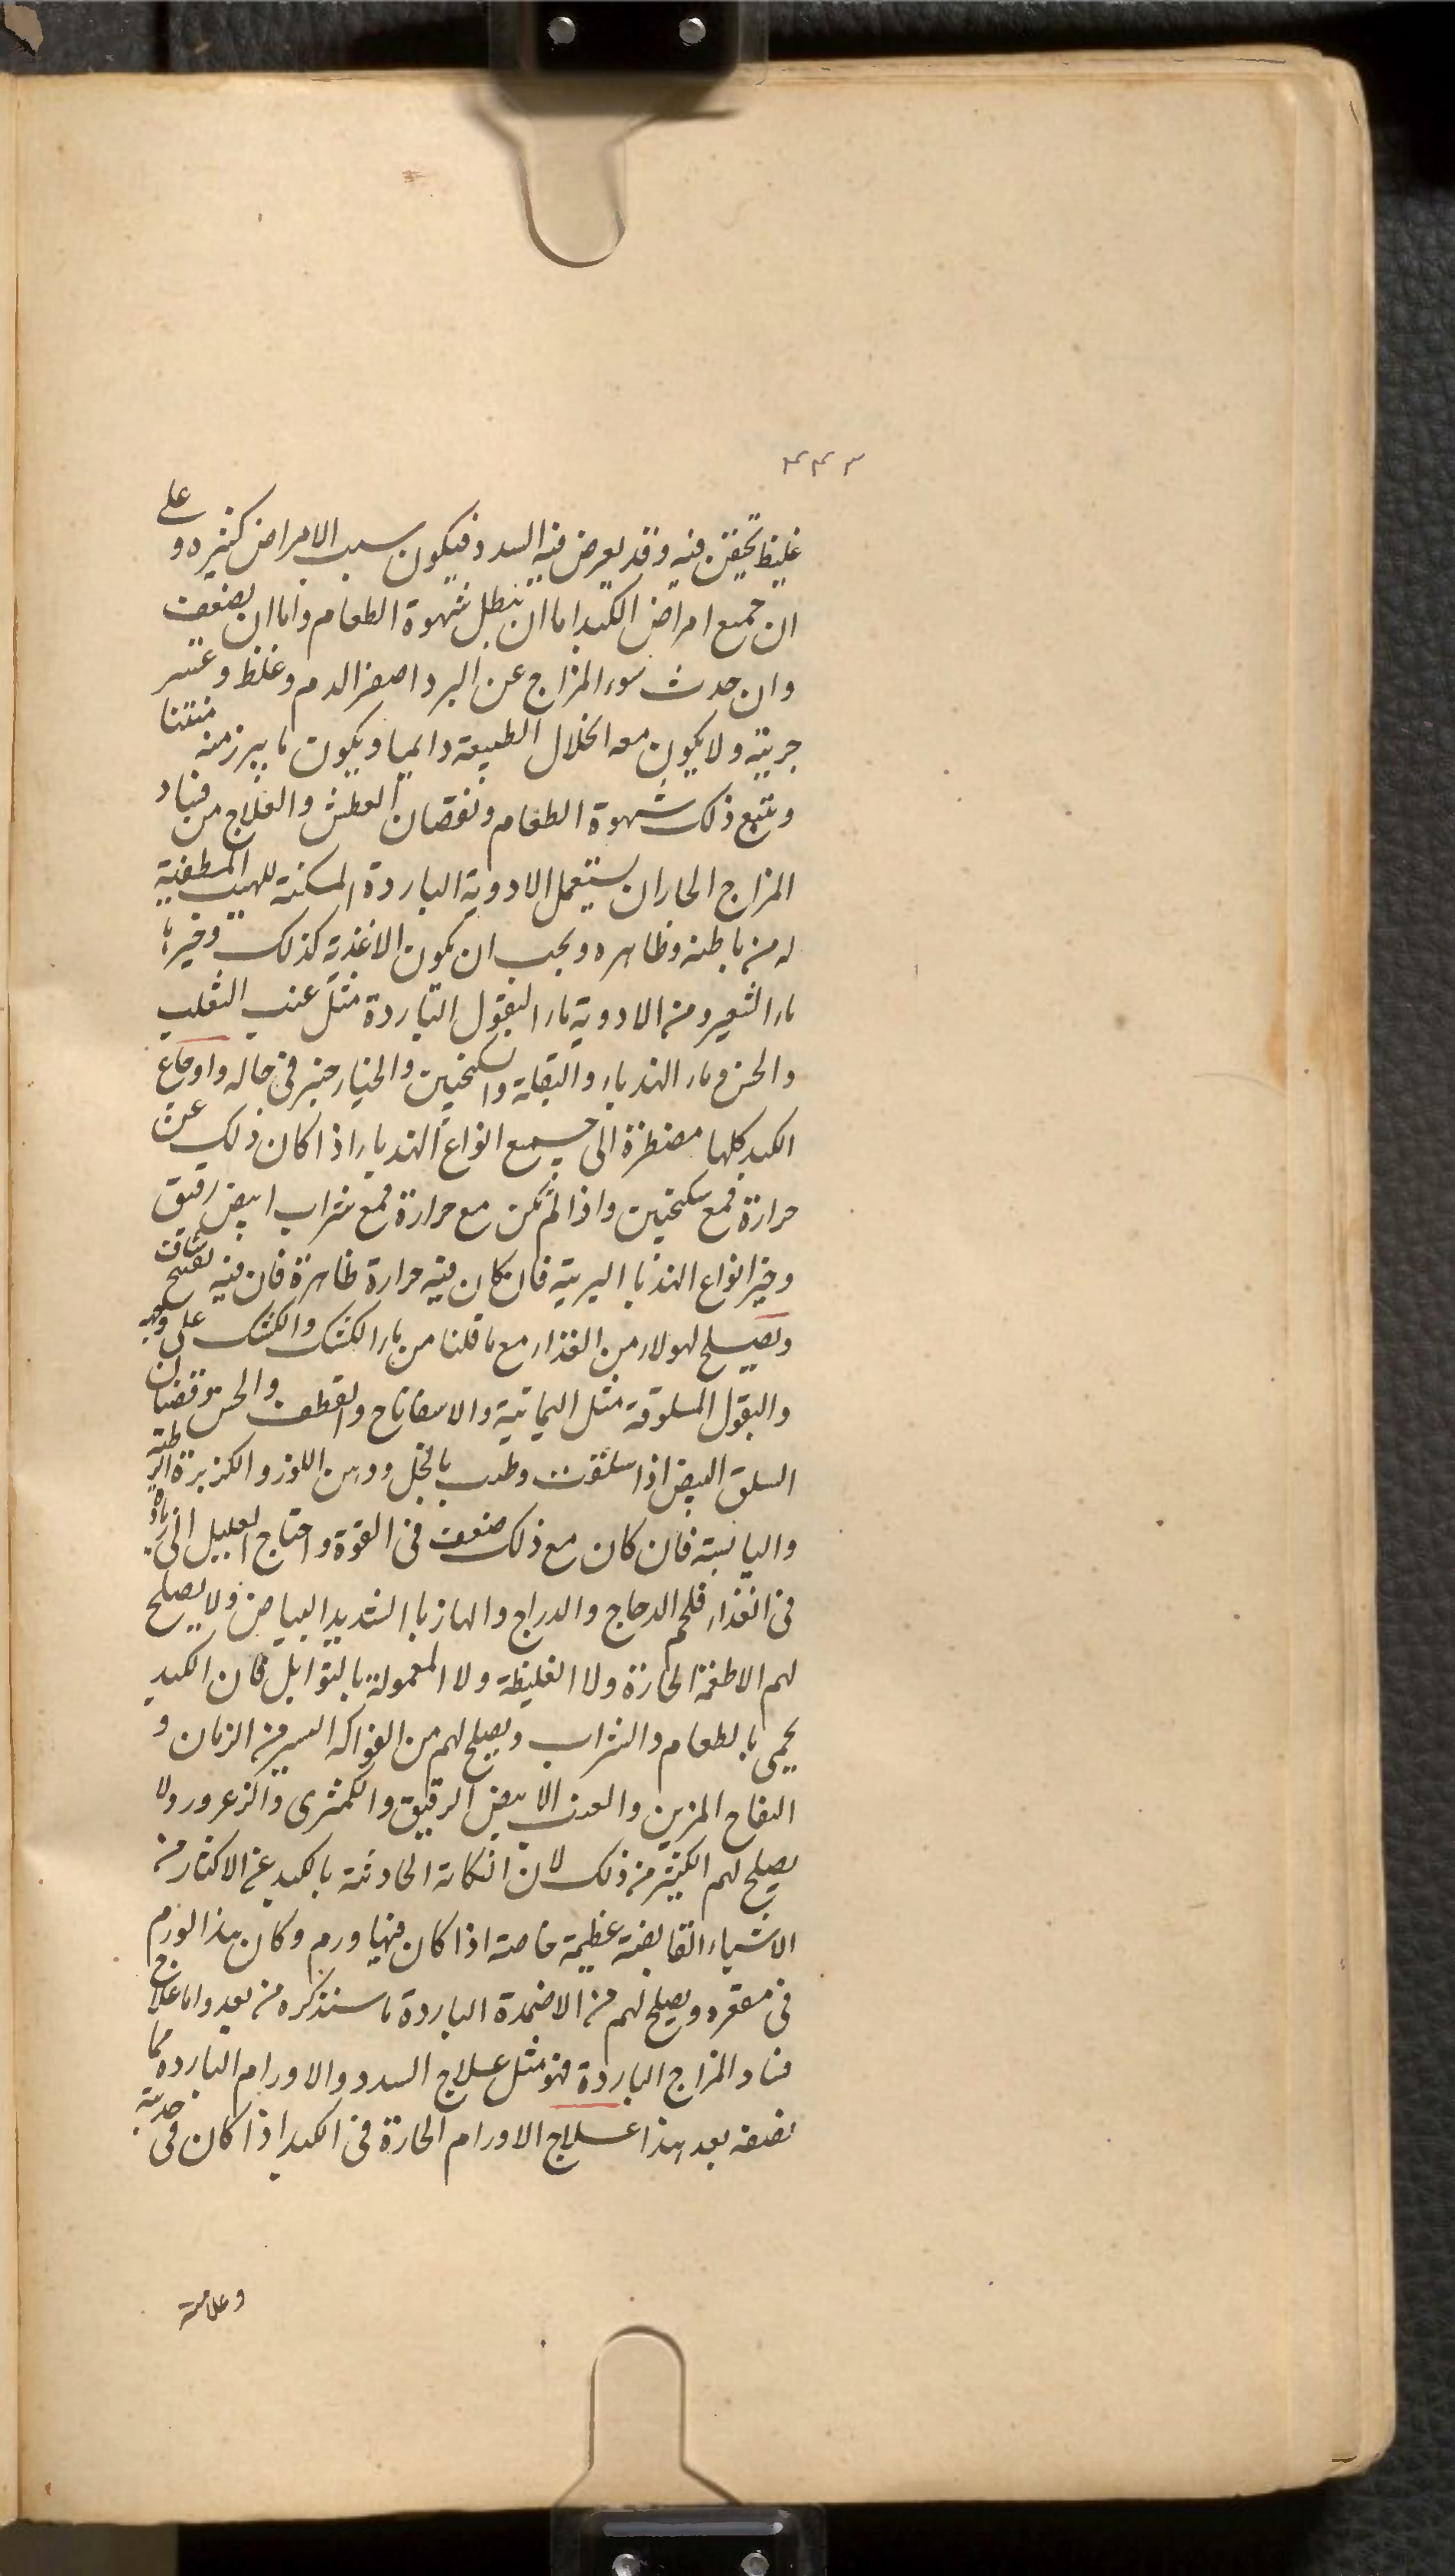 ۴۴۳
غليظ تحيقن فيه وقد يعرض فيه السدد فيكون سبب الامراض كثيره و على
ان جميع امراض الكبد اما ان تبطل شهوة الطعام واما ان يضعف
وان حدث سوء المزاج عن البرد اصفر الدم وغلظ وعسر
جريته ولا يكون معه انحلال الطبيعة دايميا ويكون ما يبرز منه منتنا
ويتبع ذلك شهوة الطعام ونقصان العطش والعلاج من فساد
المزاج الحار ان يستعمل الادوية الباردة المسكنة للهيب المطفية
له من باطنه وظاهره ويجب ان يكون الاغذية كذلك وخيرها
ماء الشعير ومن الادوية ماء البقول الباردة مثل عنب الثعلب
والخس وماء الهندباء والبقلة واسكنجبين والخيارجنبر فى حاله واوجاع
الكبد كلها مضطرة الى جميع انواع الهندباء اذا كان ذلك عن
حرارة فمع سكنجبين واذا لم تكن مع حرارة فمع شراب ابيض رقيق
وخير انواع الهندبا البرية فان كان فيه حرارة ظاهرة فان فيه تفتيح
ويصلح لهولاء من الغذاء مع ما قلنا من ماء الكشك والكشك على وجهه
والبقول المسلوقة مثل اليمانية والاسفاناخ والقطف والخس وقضبان
السلق البيض اذا سلقت وطيب بالخل ودهن اللوز والكزبرة الرطبة
واليابسة فان كان مع ذلك ضعف فى القوة واحتاج العليل الى زيادة
فى الغذاء فلحم الدجاج والدراج والهازبا الشديد البياض ولا يصلح
لهم الاطعمة الحارة ولا الغليظة ولا المعمولة بالتوابل فان الكبد
يحمى بالطعام والشراب ويصلح لهم من الفواكه اليسير من الرمان و
التفاح المزين والعنب الابيض الرقيق والكمثرى والزعرور ولا
يصلح لهم الكثير من ذلك لان النكاية الحادثة بالكبد عن الاكثار من
الاشياء القابضة عظيمة خاصة اذا كان فيها ورم وكان هذا الورم
فى مقعره ويصلح لهم من الاضمدة الباردة ما سنذكره من بعد واما علاج
فساد المزاج الباردة فهو مثل علاج السدد والاورام الباردة مما
نصفه بعد هذا علاج الاورام الحارة فى الكبد اذا كان فى حدبته
وعلامته